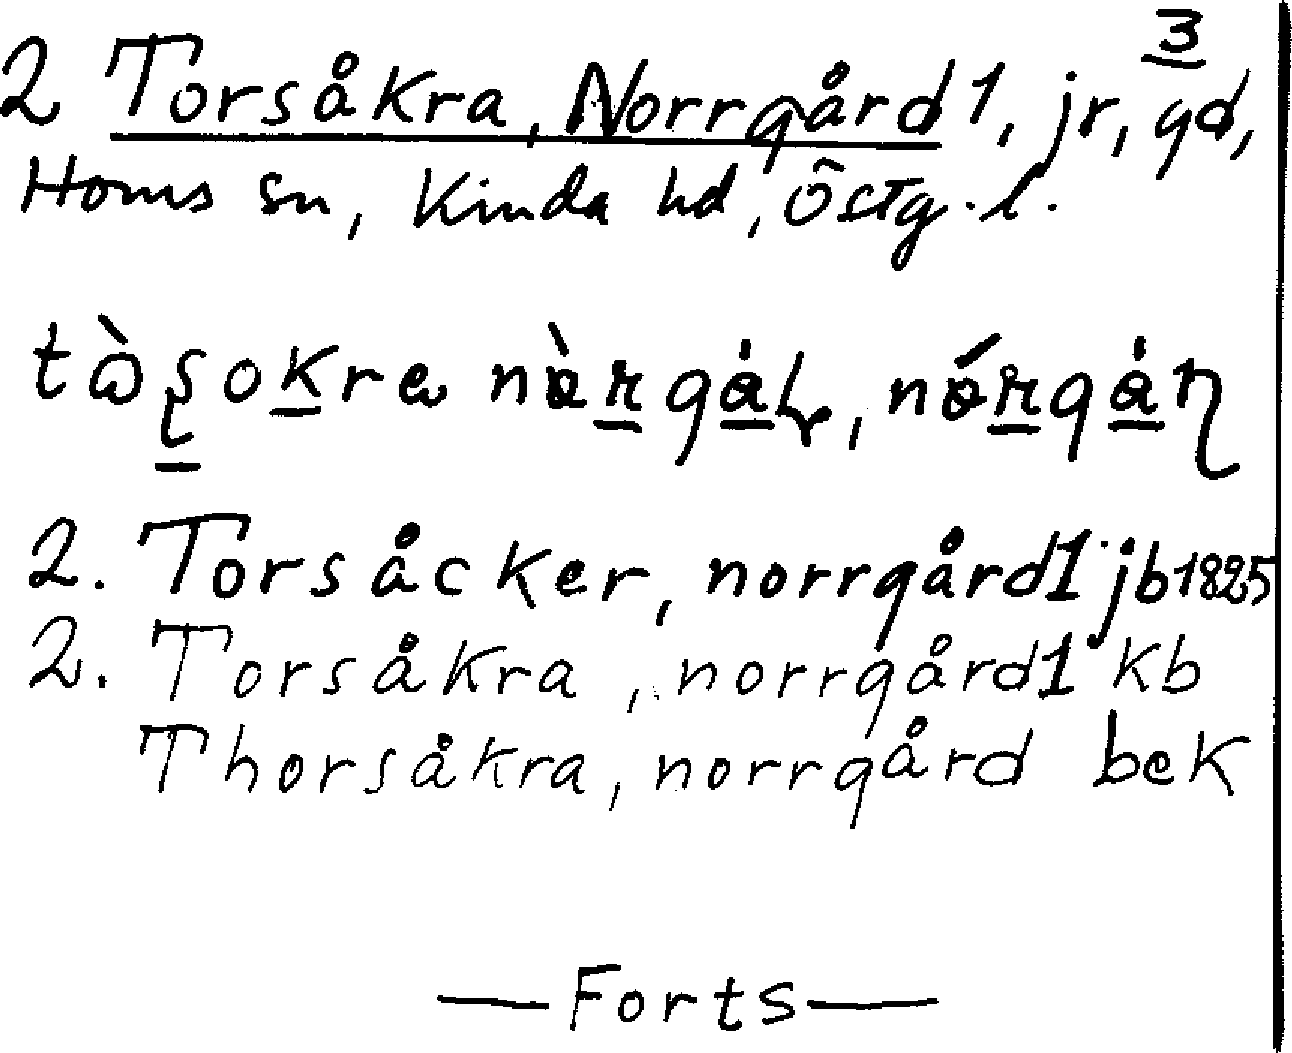 3
2 Torsåkra, Norrgård 1, jr, gd,
Homs sn, Kinda hd, Östg. l.
2. Torsåcker, norrgård 1 jb 1825
2. Torsåkra, norrgård 1 kb
Thorsåkra, norrgård bek
— Forts —